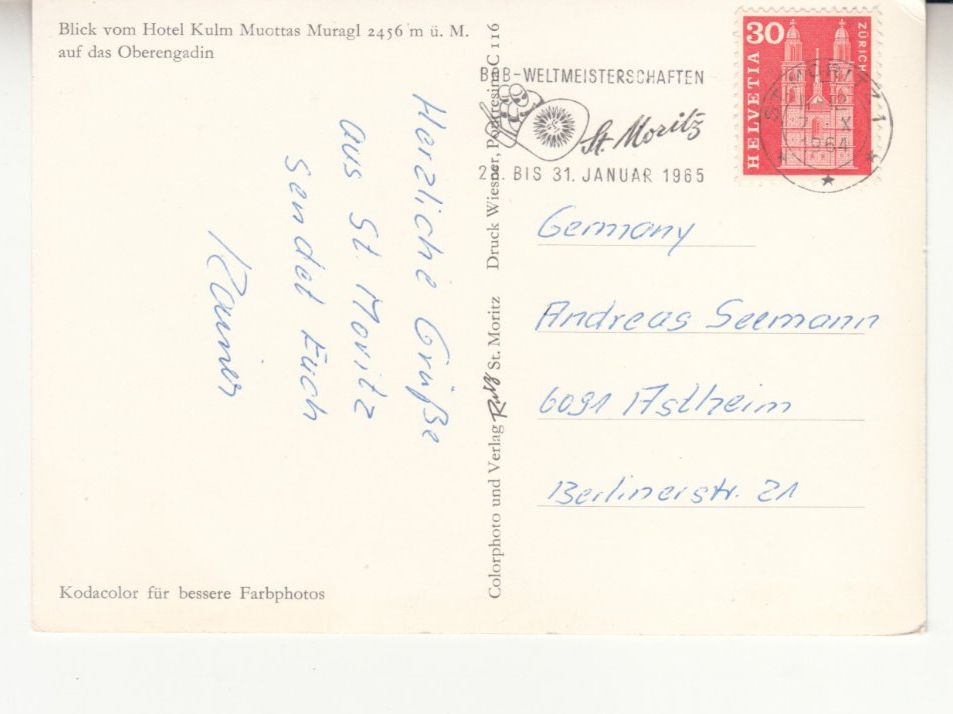 Blick vom Hotel Kulm Muottas Muragl 2456 m ü. M.
auf das Oberengadin
Herzliche Grüße
aus St. Moritz
sendet Euch
Rainer
Kodacolor für bessere Farbphotos
Colorphoto und Verlag St. Moritz Druck Wiesner, Pontresina C 116
BOB-WELTMEISTERSCHAFTEN
St. Moritz
BIS 31. JANUAR 1965
30
HELVETIA
ZÜRICH
ST. MORITZ 1
X
1964
Germany
Andreas Seemann
6091 Astheim
Berlinerstr. 21